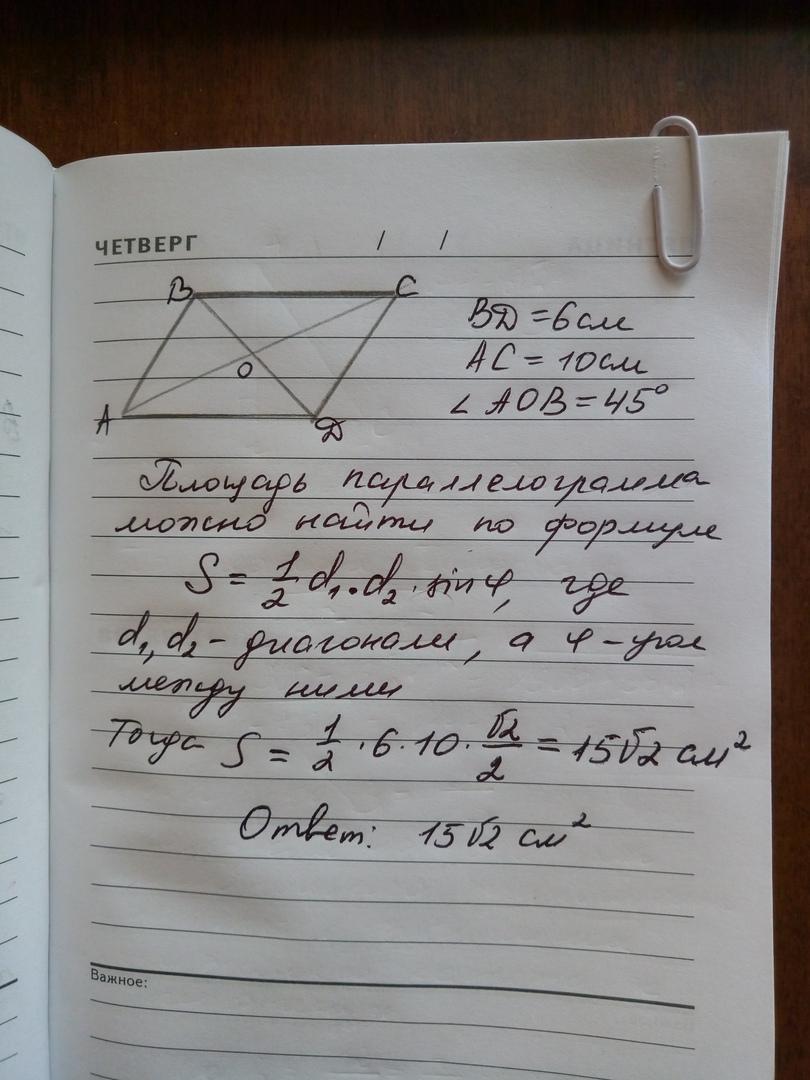 ЧЕТВЕРГ / /
B C
O
A D
BD = 6 см
AC = 10 см
∠ AOB = 45°
Площадь параллелограмма
можно найти по формуле
S = 1/2 d₁ · d₂ · sin φ, где
d₁, d₂ - диагонали, а φ - угол
между ними
Тогда S = 1/2 · 6 · 10 · √2/2 = 15√2 см²
Ответ: 15√2 см²
Важное: